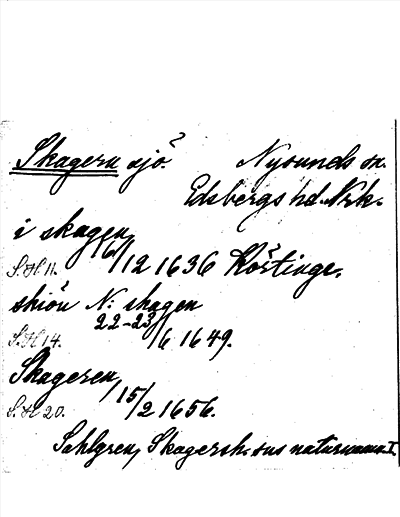 Skagern sjö. Nysunds sn.
Edsbergs hd. Nrk.
i skagen
S.H 11. 16/12 1636 Röstinge.
shiön N: skagen
S.H 14. 22-23/6 1649.
Skageren
S.H 20. 15/2 1656.
Sahlgren, Skagersh. sns naturnamn I.